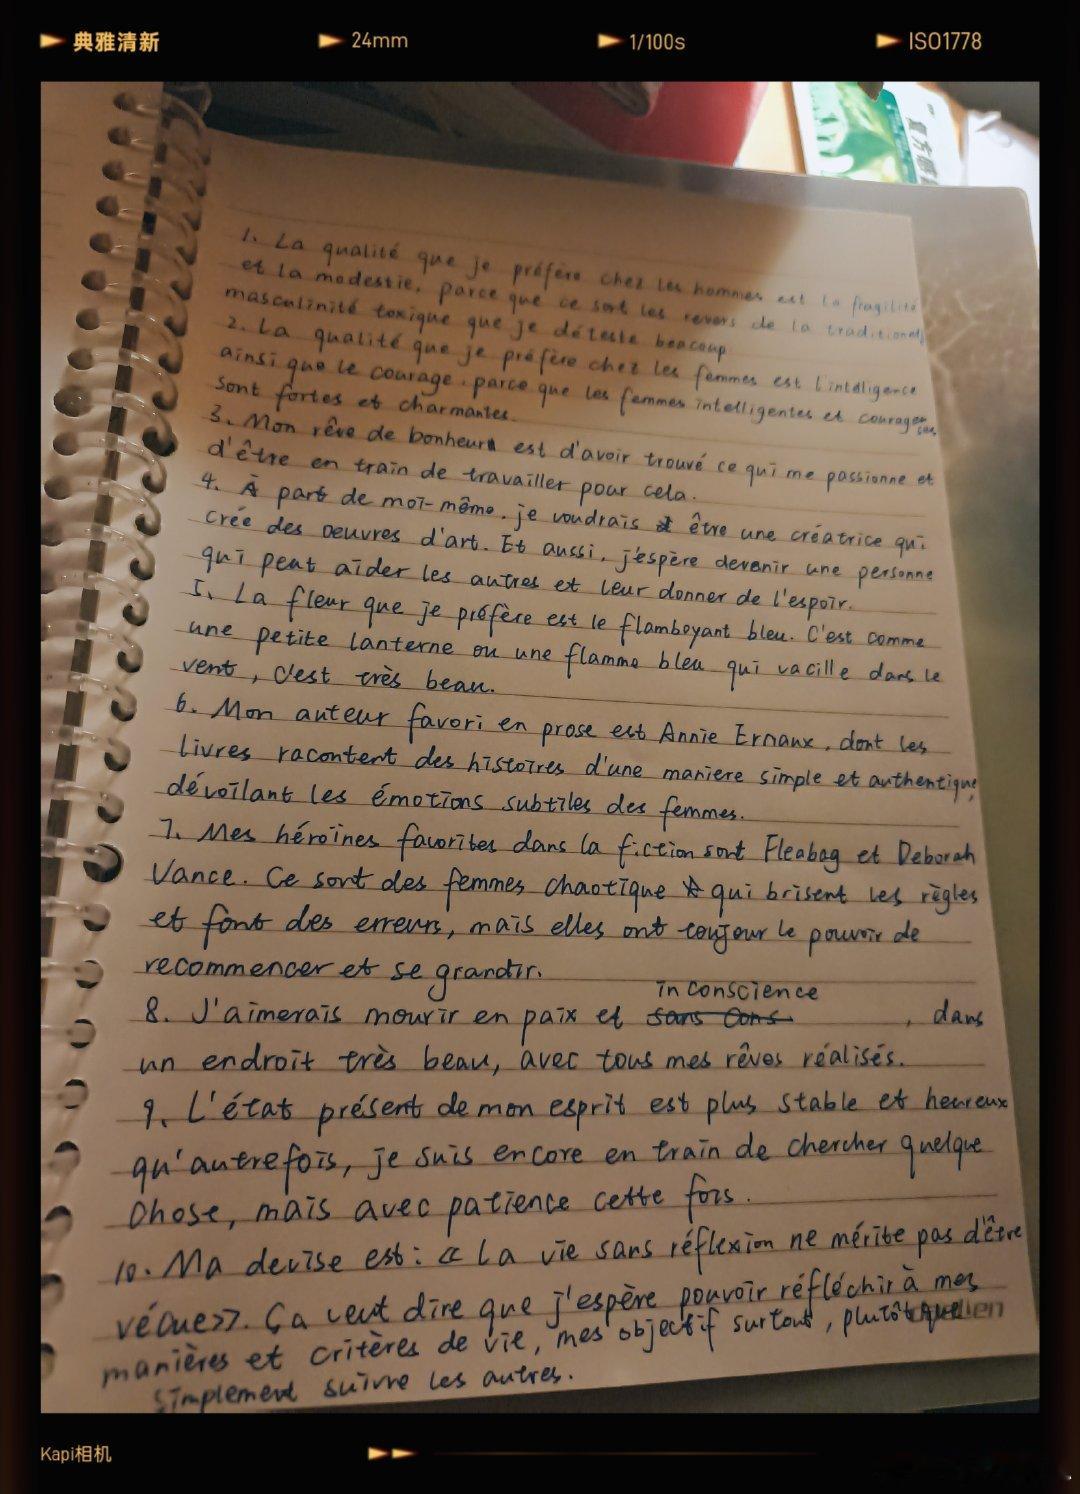 典雅清新
24mm
1/100s
ISO1778
1. La qualité que je préfère chez les hommes est la fragilité
et la modestie, parce que ce sont les revers de la traditionel
masculinité toxique que je déteste beacoup
2. La qualité que je préfère chez les femmes est l'intelligence
ainsi que le courage, parce que les femmes intelligentes et courageuses
sont fortes et charmantes.
3. Mon rêve de bonheur est d'avoir trouvé ce qui me passionne et
d'être en train de travailler pour cela.
4. À part de moi-même, je voudrais être une créatrice qui
crée des oeuvres d'art. Et aussi, j'espère devenir une personne
qui peut aider les autres et leur donner de l'espoir.
5. La fleur que je préfère est le flamboyant bleu. C'est comme
une petite lanterne ou une flamme bleu qui vacille dans le
vent, c'est très beau.
6. Mon auteur favori en prose est Annie Ernaux, dont les
livres racontent des histoires d'une maniere simple et authentique,
dévoilant les émotions subtiles des femmes.
7. Mes héroïnes favorites dans la fiction sont Fleabag et Deborah
Vance. Ce sont des femmes chaotique qui brisent les règles
et font des erreurs, mais elles ont toujour le pouvoir de
recommencer et se grandir.
8. J'aimerais mourir en paix et sans cons inconscience, dans
un endroit très beau, avec tous mes rêves réalisés.
9. L'état présent de mon esprit est plus stable et heureux
qu'autrefois, je suis encore en train de chercher quelque
chose, mais avec patience cette fois.
10. Ma devise est : « La vie sans réflexion ne mérite pas d'être
vécue ». Ça veut dire que j'espère pouvoir réfléchir à mes
manières et critères de vie, mes objectif surtout, plutôt que
simplement suivre les autres.
Kapi相机